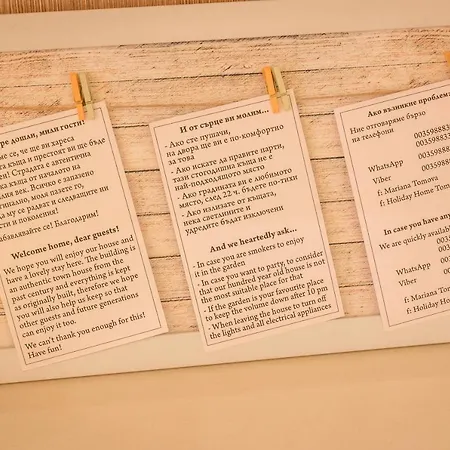 ре дошли, мили гости!
ме се, че ще ви хареса
къща и престоят ви ще бъде
ен! Сградата е автентична
ка къща от началото на
лия век. Всичко е запазено
гинално, моля пазете го,
да му се радват и следващи ни
сти и поколения!
абавлявайте се! Благодарим!
Welcome home, dear guests!
We hope you will enjoy our house and
have a lovely stay here. The building is
an authentic town house from the
past century and everything is kept
as originally built, therefore we hope
you will also help us keep so that
other guests and future generations
can enjoy it too.
We can't thank you enough for this!
Have fun!
И от сърце ви молим...
- Ако сте пушачи,
на двора ще ви е по-комфортно
за това
- Ако искате да правите парти,
тази стогодишна къща не е
най-подходящото място
- Ако градината ви е любимото
място, след 22 ч. бъдете по-тихи
- Ако излизате от къщата,
нека светлините и
уредите бъдат изключени
And we heartedly ask...
- In case you are smokers to enjoy
it in the garden
- In case you want to party, to consider
that our hundred year old house is not
the most suitable place for that
- If the garden is your favourite place
to keep the volume down after 10 pm
- When leaving the house to turn off
the lights and all electrical appliances
Ако възникне проблем
Ние отговаряме бързо
на телефони
00359883
0035988
WhatsApp 00359
Viber
f: Mariana Tomova
f: Holiday Home Tom
In case you have any
We are quickly availab
0035
003
WhatsApp 00
Viber
f: Mariana Tom
f: Holiday Ho